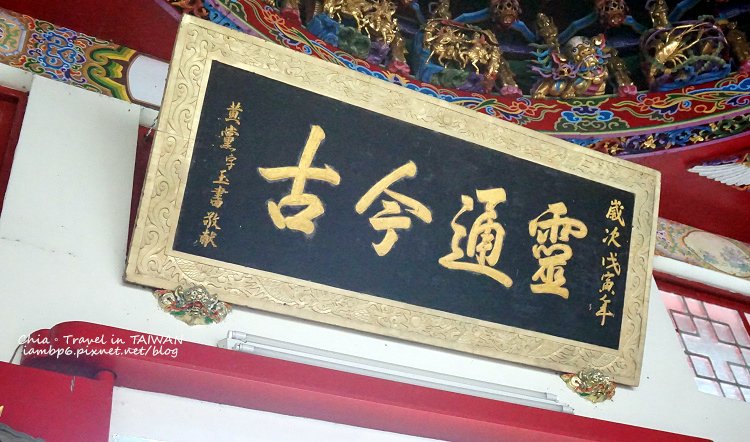 歲次戊寅年
靈通今古
黃黨字玉書敬獻
Chia。Travel in TAIWAN
iambp6.pixnet.net/blog